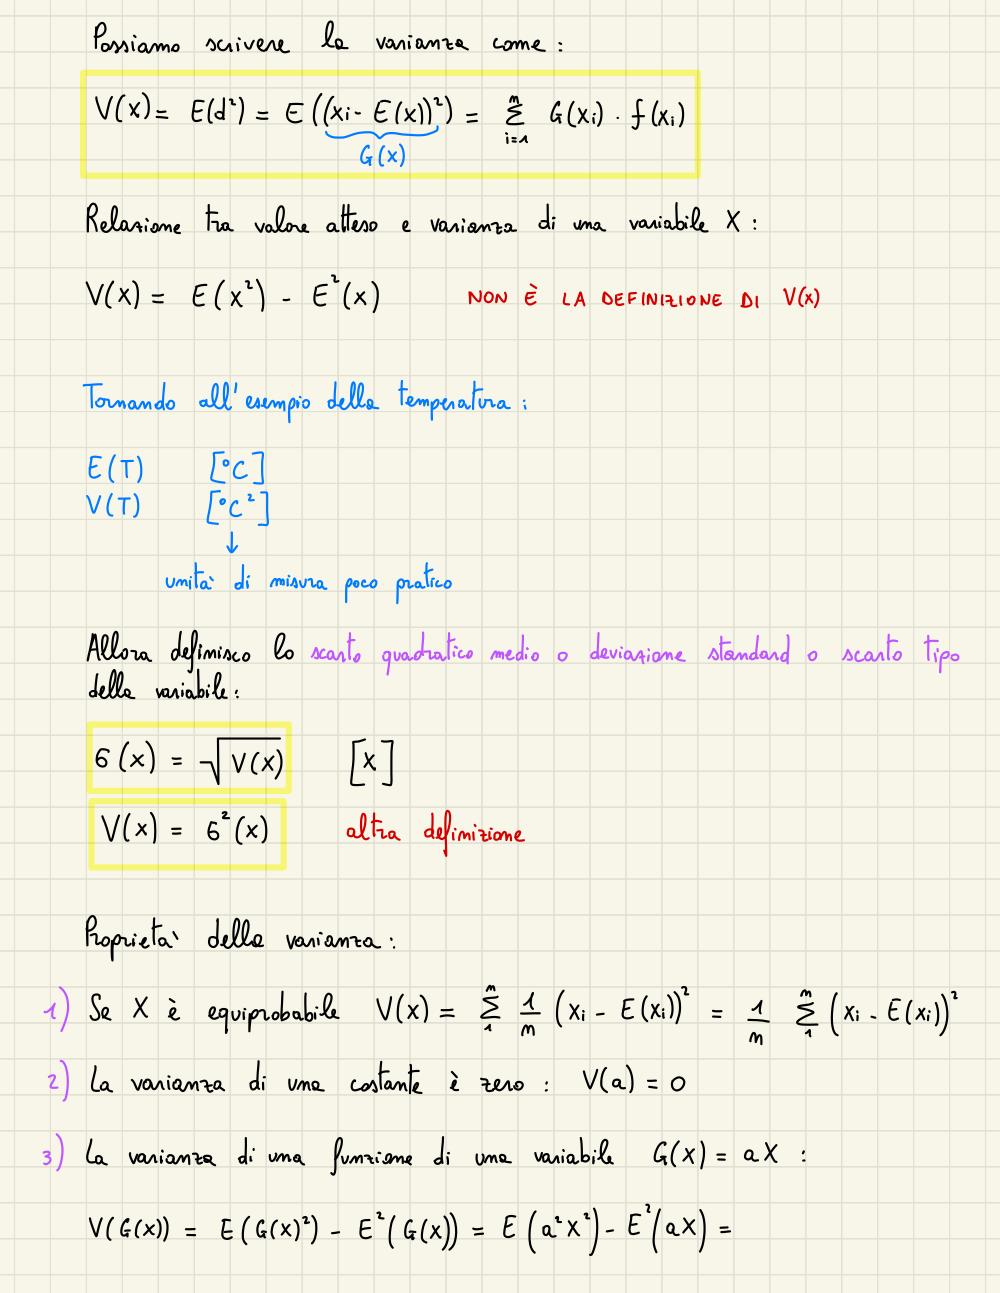 Possiamo scrivere la varianza come:
V(x) = E(d²) = E((xi - E(x))²) = Σ_{i=1}^{n} G(xi) · f(xi)
G(x)
Relazione tra valore atteso e varianza di una variabile X:
V(x) = E(x²) - E²(x) NON È LA DEFINIZIONE DI V(x)
Tornando all'esempio della temperatura:
E(T) [°C]
V(T) [°C²]
↓
unità di misura poco pratico
Allora definisco lo scarto quadratico medio o deviazione standard o scarto tipo
della variabile:
σ(x) = √V(x) [x]
V(x) = σ²(x) altra definizione
Proprietà della varianza:
1) Se X è equiprobabile V(x) = Σ_{1}^{n} 1/n (xi - E(xi))² = 1/n Σ_{1}^{n} (xi - E(xi))²
2) La varianza di una costante è zero: V(a) = 0
3) La varianza di una funzione di una variabile G(x) = aX :
V(G(x)) = E(G(x)²) - E²(G(x)) = E(a²X²) - E²(aX) =